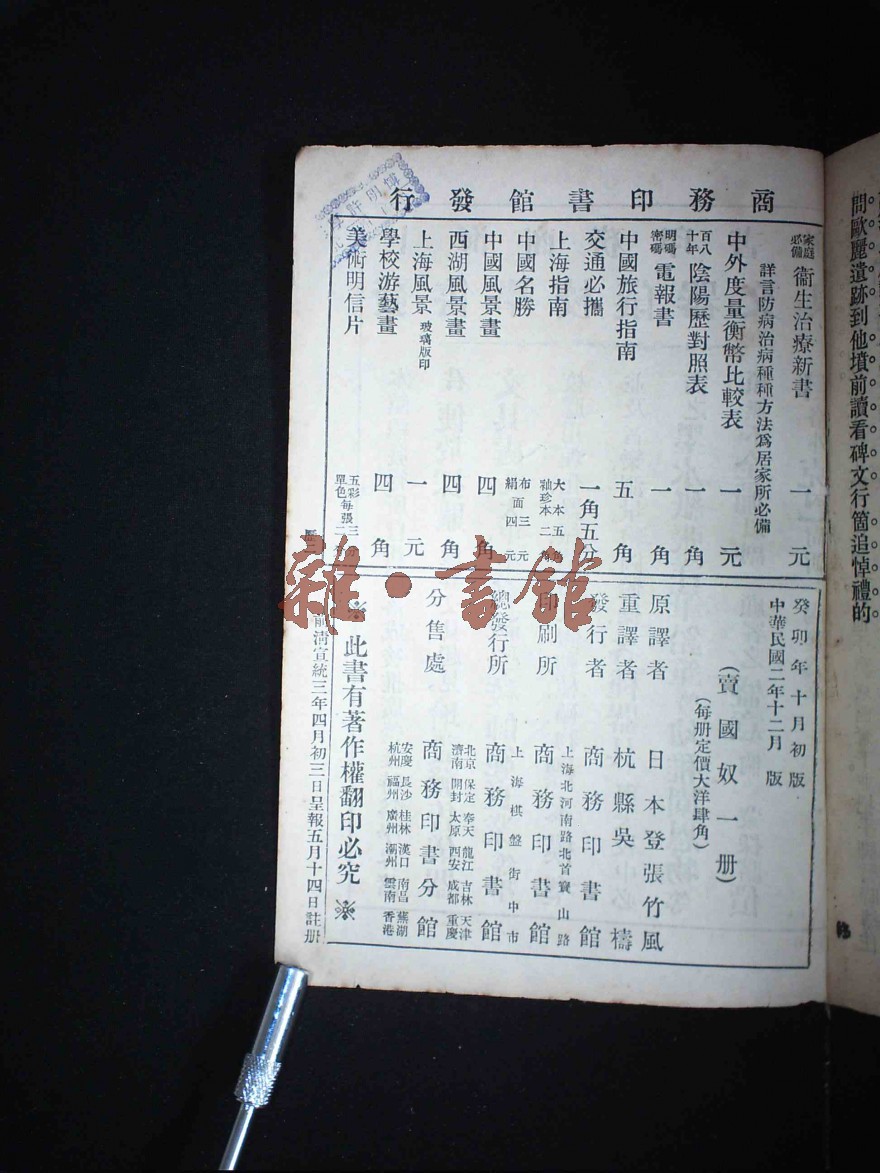 問歐麗遺跡到他墳前讀看碑文行箇追悼禮的
商務印書館發行
家庭必備 衞生治療新書 一元
詳言防病治病種種方法爲居家所必備
中外度量衡幣比較表 一元
百八十年 陰陽歷對照表 一角
明碼密碼 電報書 一角
中國旅行指南 五角
交通必攜 一角五分
上海指南 大本五角 袖珍本二角
中國名勝 布面三元 絹面四元
中國風景畫 四角
西湖風景畫 四角
上海風景 玻璃版印 一元
學校游藝畫 四角
美術明信片 五彩每張三 單色
癸卯年十月初版
中華民國二年十二月 版
(賣國奴一册)
(每册定價大洋肆角)
原譯者 日本登張竹風
重譯者 杭縣吳檮
發行者 商務印書館
上海北河南路北首寶山路
印刷所 商務印書館
上海棋盤街中市
總發行所 商務印書館
北京 保定 奉天 龍江 吉林 天津
濟南 開封 太原 西安 成都 重慶
分售處 商務印書分館
安慶 長沙 桂林 漢口 南昌 蕪湖
杭州 福州 廣州 潮州 雲南 香港
※此書有著作權翻印必究※
前淸宣統三年四月初三日呈報五月十四日註册
雜·書館